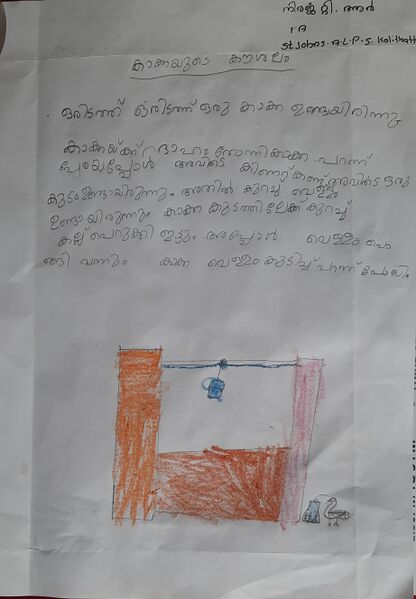 നിരജ് റ്റി. ആർ
1 A
St. Johns. A.L.P.S. Kolithatt
കാക്കയുടെ കൗശലം
ഒരിടത്ത് ഒരിടത്ത് ഒരു കാക്ക ഉണ്ടായിരിന്നു
കാക്കയ്ക്ക് ദാഹം തോന്നി കാക്ക പറന്ന്
പ്പോയപ്പോൾ അവിടെ കിണറ്റ് കണ്ടു അവിടെ ഒരു
കുടംമുണ്ടായിരുന്നു. അതിൽ കുറച്ച് വെള്ളം
ഉണ്ടായിരുന്നു. കാക്ക കുടത്തിലേക്ക് കുറച്ച്
കല്ല് പെറുക്കി ഇട്ടും. അപ്പോൾ വെള്ളം പൊ
ങ്ങി വന്നും കാക്ക വെള്ളം കുടിച്ച് പറന്ന് പോയി.